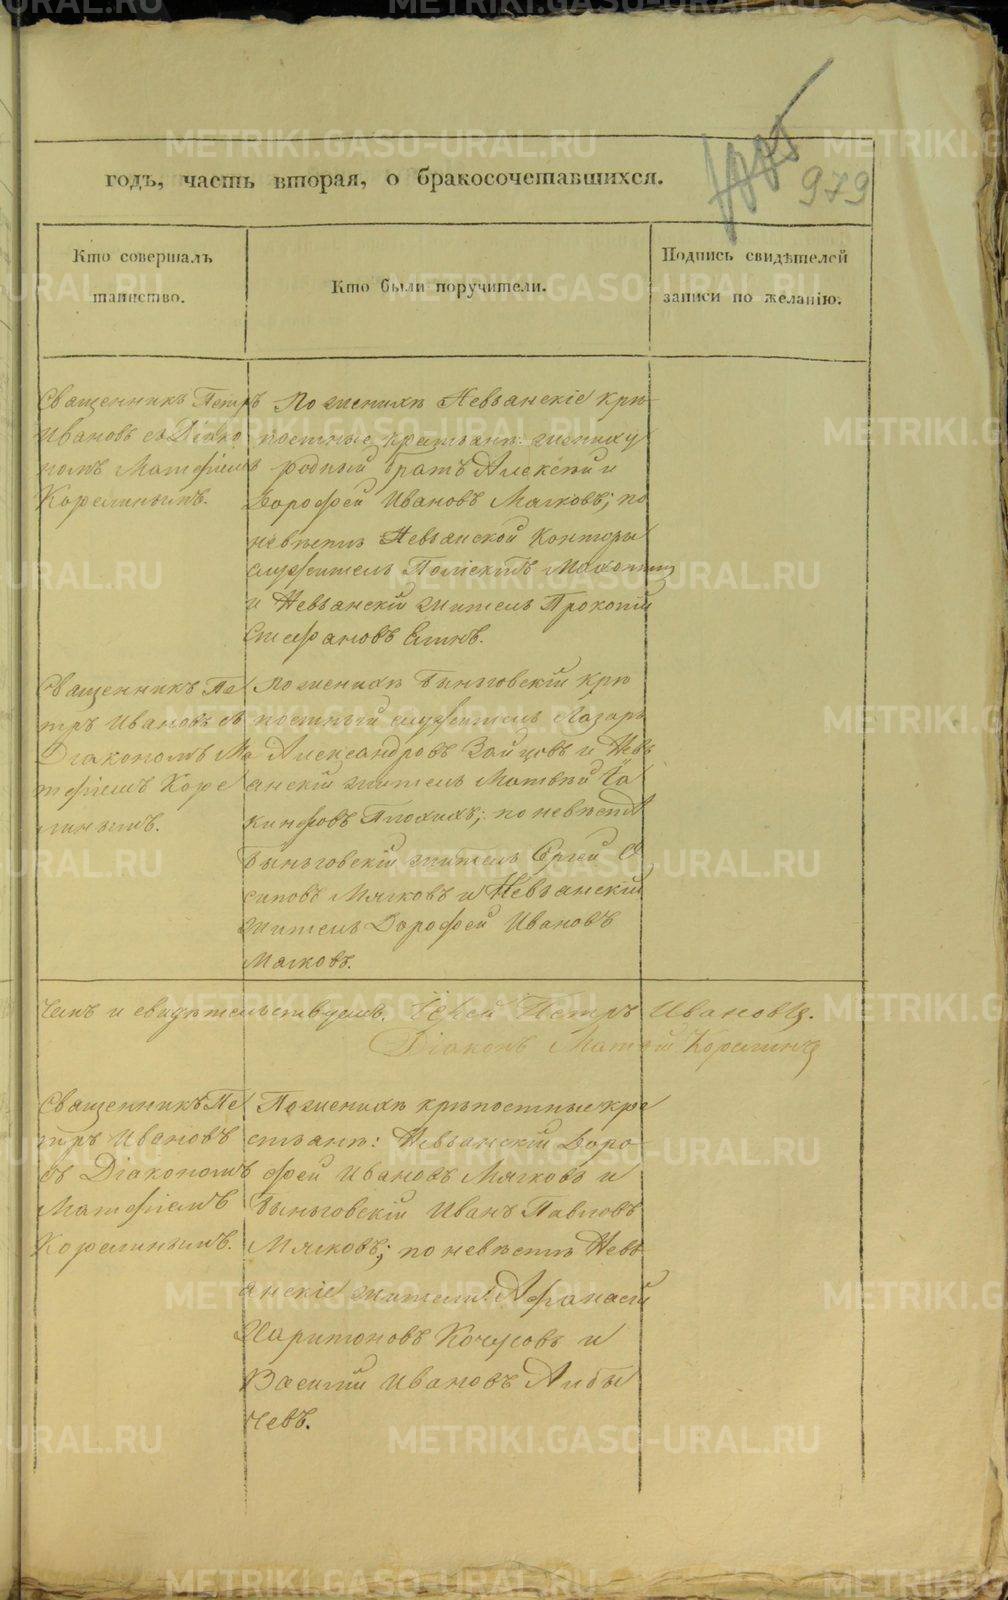 годъ, часть вторая, о бракосочетавшихся.
979
Кто совершалъ
таинство.
Кто были поручители.
Подпись свидѣтелей
записи по желанію.
Священникъ Петръ
Ивановъ съ Діяко
номъ Матфіемъ
Корелинымъ.
По женихѣ Невьянскіе крѣ-
постные крестьяне: жениху
родный братъ Алексѣй и
Дорофей Ивановъ Мягковъ; по
невѣстѣ Невьянской Конторы
служитель
и Невьянскій житель Прокопій
Стефановъ
Священникъ Пе
тръ Ивановъ съ
Діакономъ Ма
тфіемъ Коре
линымъ.
По женихѣ Быньговскій крѣ
постный служитель Лазарь
Александровъ Зайцовъ и Невь
янскій житель Матвѣй Іа
кинфовъ Плохихъ; по невѣстѣ
Быньговскій житель Сергей О
сиповъ Мягковъ и Невьянскій
житель Дорофей Ивановъ
Мягковъ.
чемъ и свидѣтельствуемъ. Іерей Петръ Ивановъ.
Діаконъ Матфій Корелинъ
Священникъ Пе
тръ Ивановъ
съ Діакономъ
Матфіемъ
Корелинымъ.
По женихѣ крѣпостные кре
стьяне: Невьянскій Доро-
фей Ивановъ Мягковъ и
Быньговскій Иванъ Павловъ
Мягковъ; по невѣстѣ Невь
янскіе жители: Афанасій
Харитоновъ и
Василій Ивановъ
чевъ.
METRIKI.GASO-URAL.RU